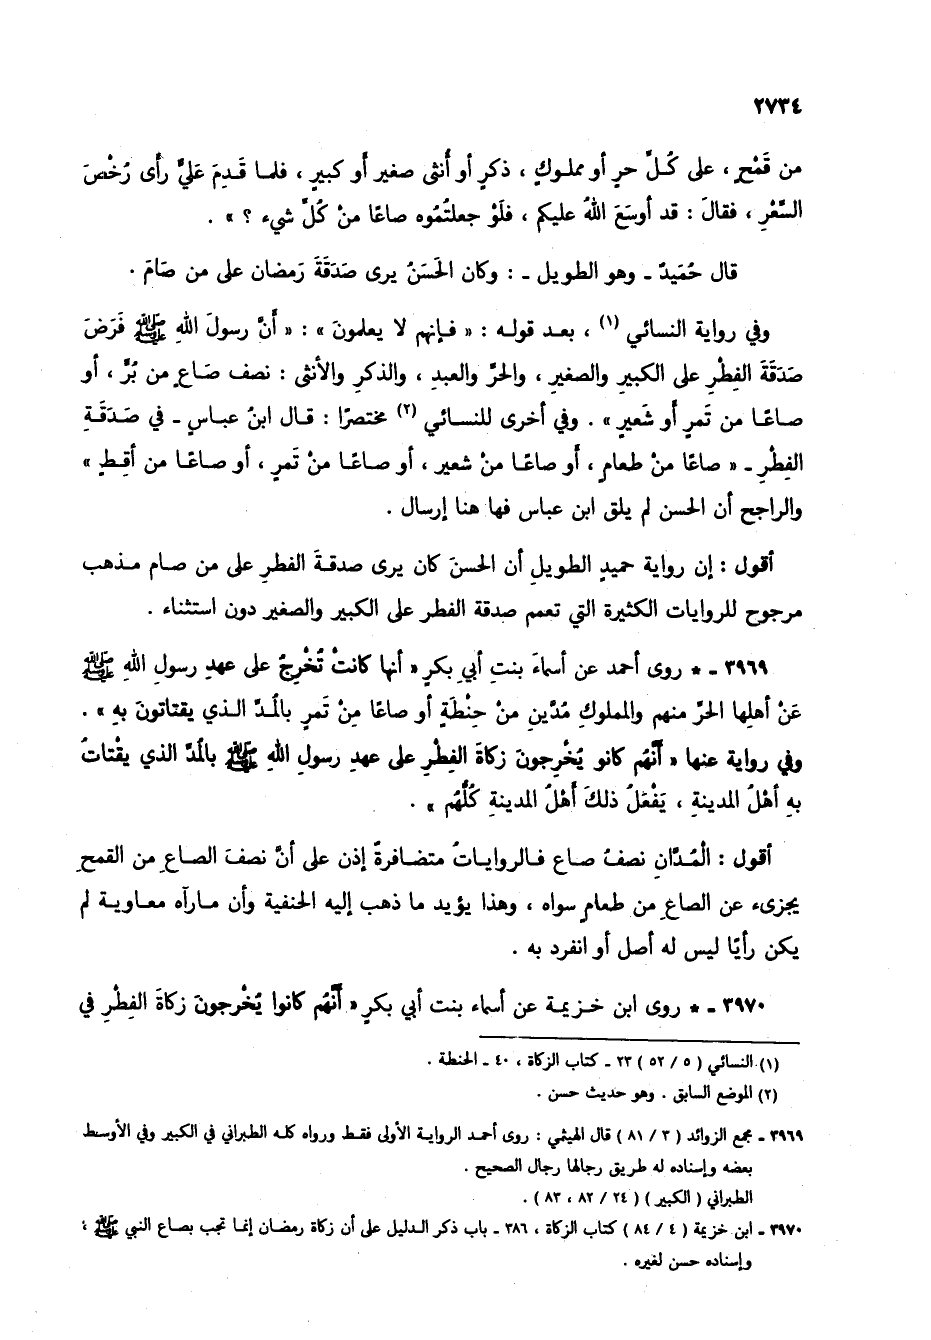 ٢٧٣٤
من قَمْحٍ ، على كُلِّ حرٍ أو مملوكٍ ، ذكرٍ أو أُنثى صغير أو كبيرٍ ، فلما قَدِمَ عَليٌّ رأى رُخْصَ
السِّعْرِ ، فقالَ : قد أوسَعَ اللهُ عليكم ، فلَوْ جعلتُمُوه صاعًا منْ كُلِّ شيء ؟ » .
قال حُمَيدٌ ـ وهو الطويل ـ : وكان الحَسَنُ يرى صَدَقَةَ رَمضان على من صَامَ .
وفي رواية النسائي (١) ، بعـد قولـه : « فـإنهم لا يعلمونَ » : « أنَّ رسولَ اللهِ ﷺ فَرَضَ
صَدَقَةَ الفِطْرِ على الكبيرِ والصغيرِ ، والحرِّ والعبدِ ، والذكرِ والأنثى : نصف صَاعٍ من بُرٍّ ، أو
صاعًـا من تَمرٍ أو شَعيرٍ » . وفي أخرى للنسـائي (٢) مختصرًا : قـال ابنُ عبـاسٍ ـ في صَـدَقَـةِ
الفِطْرِ ـ « صاعًا منْ طعامٍ ، أو صاعًـا منْ شعير ، أو صـاعًـا منْ تَمرٍ ، أو صـاعًـا من أقِـطٍ »
والراجح أن الحسن لم يلق ابن عباس فها هنا إرسال .
أقول : إن رواية حميدٍ الطويلِ أن الحسنَ كان يرى صدقـةَ الفطرِ على من صـام مـذهب
مرجوح للروايات الكثيرة التي تعمم صدقة الفطر على الكبير والصغير دون استثناء .
٣٩٦٩ ـ * روى أحمد عن أسماءَ بنتِ أبي بكرٍ « أنها كانتْ تُخْرِجُ على عهدِ رسولِ اللهِ ﷺ
عَنْ أهلِها الحرِّ منهم والمملوكِ مُدَّينِ منْ حِنْطَةٍ أو صاعًا مِنْ تَمرٍ بالْمـدِّ الـذي يقتاتونَ بهِ » .
وفي رواية عنها « أنَّهُم كانو يُخْرِجونَ زكاةَ الفِطْرِ على عهدِ رسولِ اللهِ ﷺ بالْمدِّ الذي يقْتاتُ
بهِ أهْلُ المدينةِ ، يَفْعَلُ ذلكَ أهْلُ المدينةِ كُلُّهُم » .
أقول : الْمُـدَّانِ نصفُ صـاع فـالروايـاتُ متضـافرةٌ إذن على أنَّ نصفَ الصـاعِ من القمحِ
يجزىء عن الصاعِ من طعامٍ سواه ، وهذا يؤيد ما ذهب إليه الحنفية وأن مـارآه معـاويـة لم
يكن رأيًا ليس له أصل أو انفرد به .
٣٩٧٠ ـ * روى ابن خـزيمـة عن أسماء بنت أبي بكرٍ « أنَّهُم كانوا يُخْرجونَ زكاةَ الفِطْرِ في
(١) النسائي ( ٥ / ٥٢ ) ٢٣ ـ كتاب الزكاة ، ٤٠ ـ الحنطة .
(٢) الموضع السابق . وهو حديث حسن .
٣٩٦٩ ـ مجمع الزوائد ( ٣ / ٨١ ) قال الهيثمي : روى أحمد الروايـة الأولى فقـط ورواه كلـه الطبراني في الكبير وفي الأوسـط
بعضه وإسناده له طريق رجالها رجال الصحيح .
الطبراني ( الكبير ) ( ٢٤ / ٨٢ ، ٨٣ ) .
٣٩٧٠ ـ ابن خزيمة ( ٤ / ٨٤ ) كتاب الزكاة ، ٣٨٦ ـ باب ذكر الـدليل على أن زكاة رمضان إنمـا تجب بصاع النبي ﷺ ؛
وإسناده حسن لغيره .